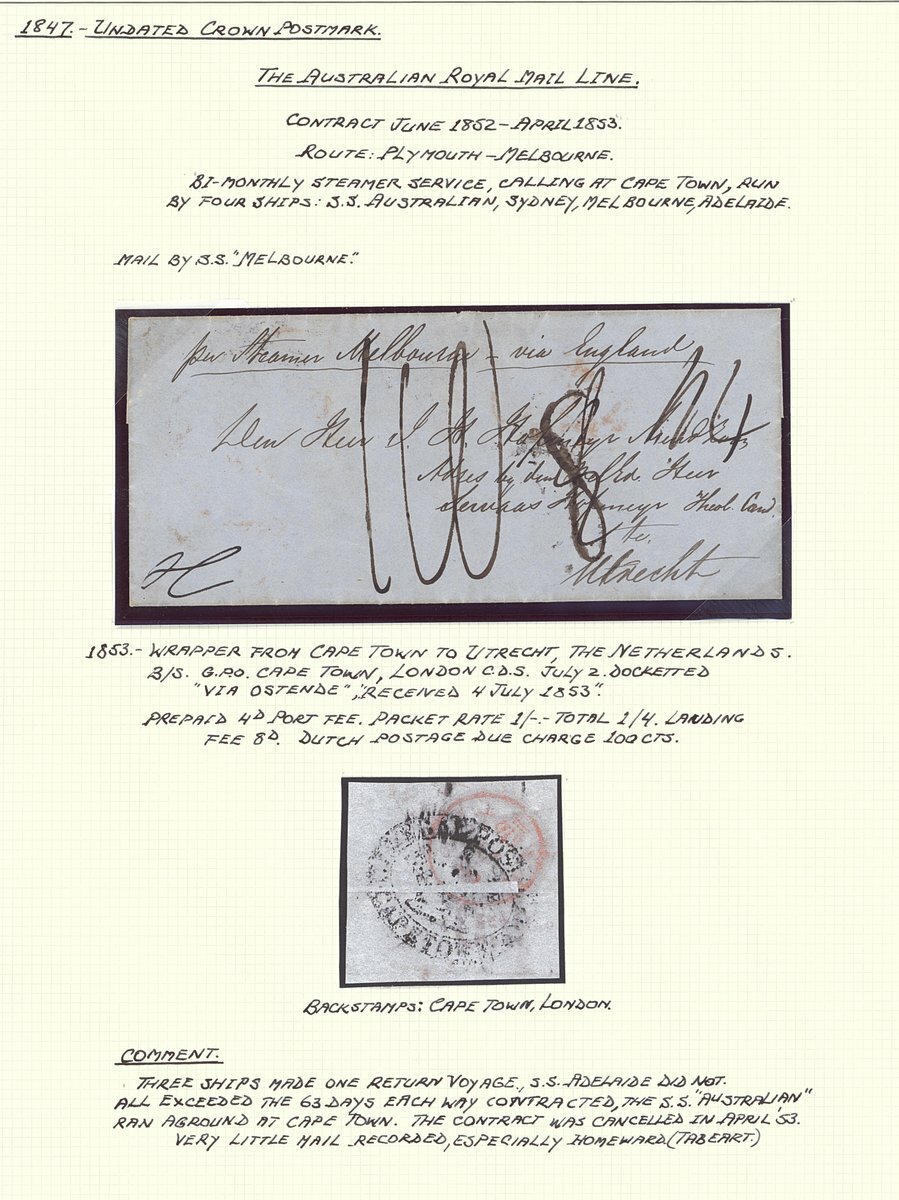 1847.- UNDATED CROWN POSTMARK.
THE AUSTRALIAN ROYAL MAIL LINE.
CONTRACT JUNE 1852 – APRIL 1853.
ROUTE: PLYMOUTH – MELBOURNE.
BI-MONTHLY STEAMER SERVICE, CALLING AT CAPE TOWN, RUN
BY FOUR SHIPS: S.S. AUSTRALIAN, SYDNEY, MELBOURNE, ADELAIDE.
MAIL BY S.S. "MELBOURNE".
per Steamer Melbourne – via England
Den Heer J. H. Hofmeyr
Adres bij den Heer
Servaas Hofmeyr Theol. Cand.
te
Utrecht
100
8
1853.- WRAPPER FROM CAPE TOWN TO UTRECHT, THE NETHERLANDS.
B/S. G.P.O. CAPE TOWN, LONDON C.D.S. JULY 2. DOCKETTED
"VIA OSTENDE", "RECEIVED 4 JULY 1853".
PREPAID 4D PORT FEE. PACKET RATE 1/-.- TOTAL 1/4. LANDING
FEE 8D. DUTCH POSTAGE DUE CHARGE 100 CTS.
BACKSTAMPS: CAPE TOWN, LONDON.
COMMENT.
THREE SHIPS MADE ONE RETURN VOYAGE, S.S. ADELAIDE DID NOT.
ALL EXCEEDED THE 63 DAYS EACH WAY CONTRACTED, THE S.S. "AUSTRALIAN"
RAN AGROUND AT CAPE TOWN. THE CONTRACT WAS CANCELLED IN APRIL '53.
VERY LITTLE MAIL RECORDED, ESPECIALLY HOMEWARD. (TABEART.)